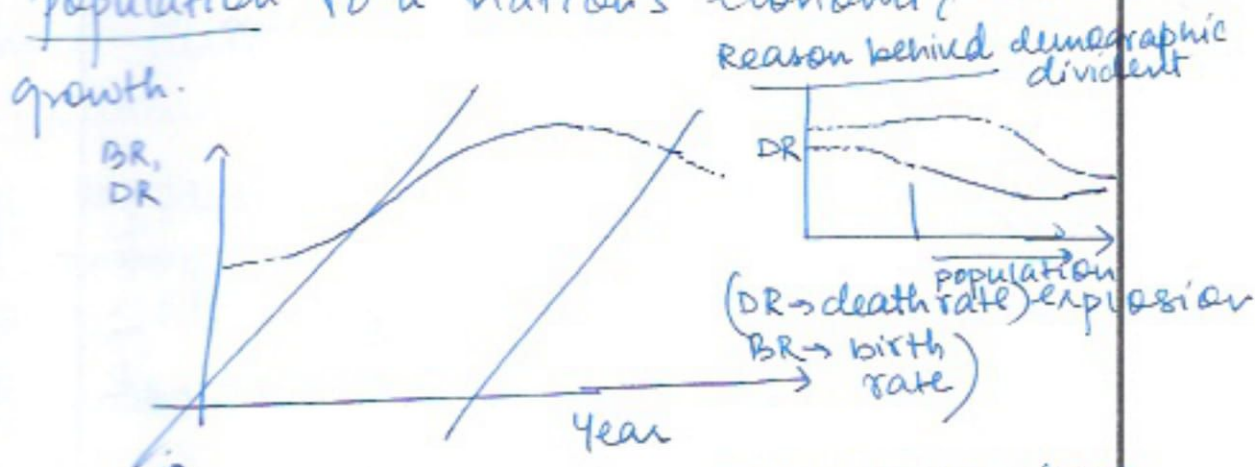 population to a nation's economic
growth.
Reason behind demographic
divident
BR,
DR
DR
population
explosion
(DR→death rate)
BR→ birth
rate)
Year